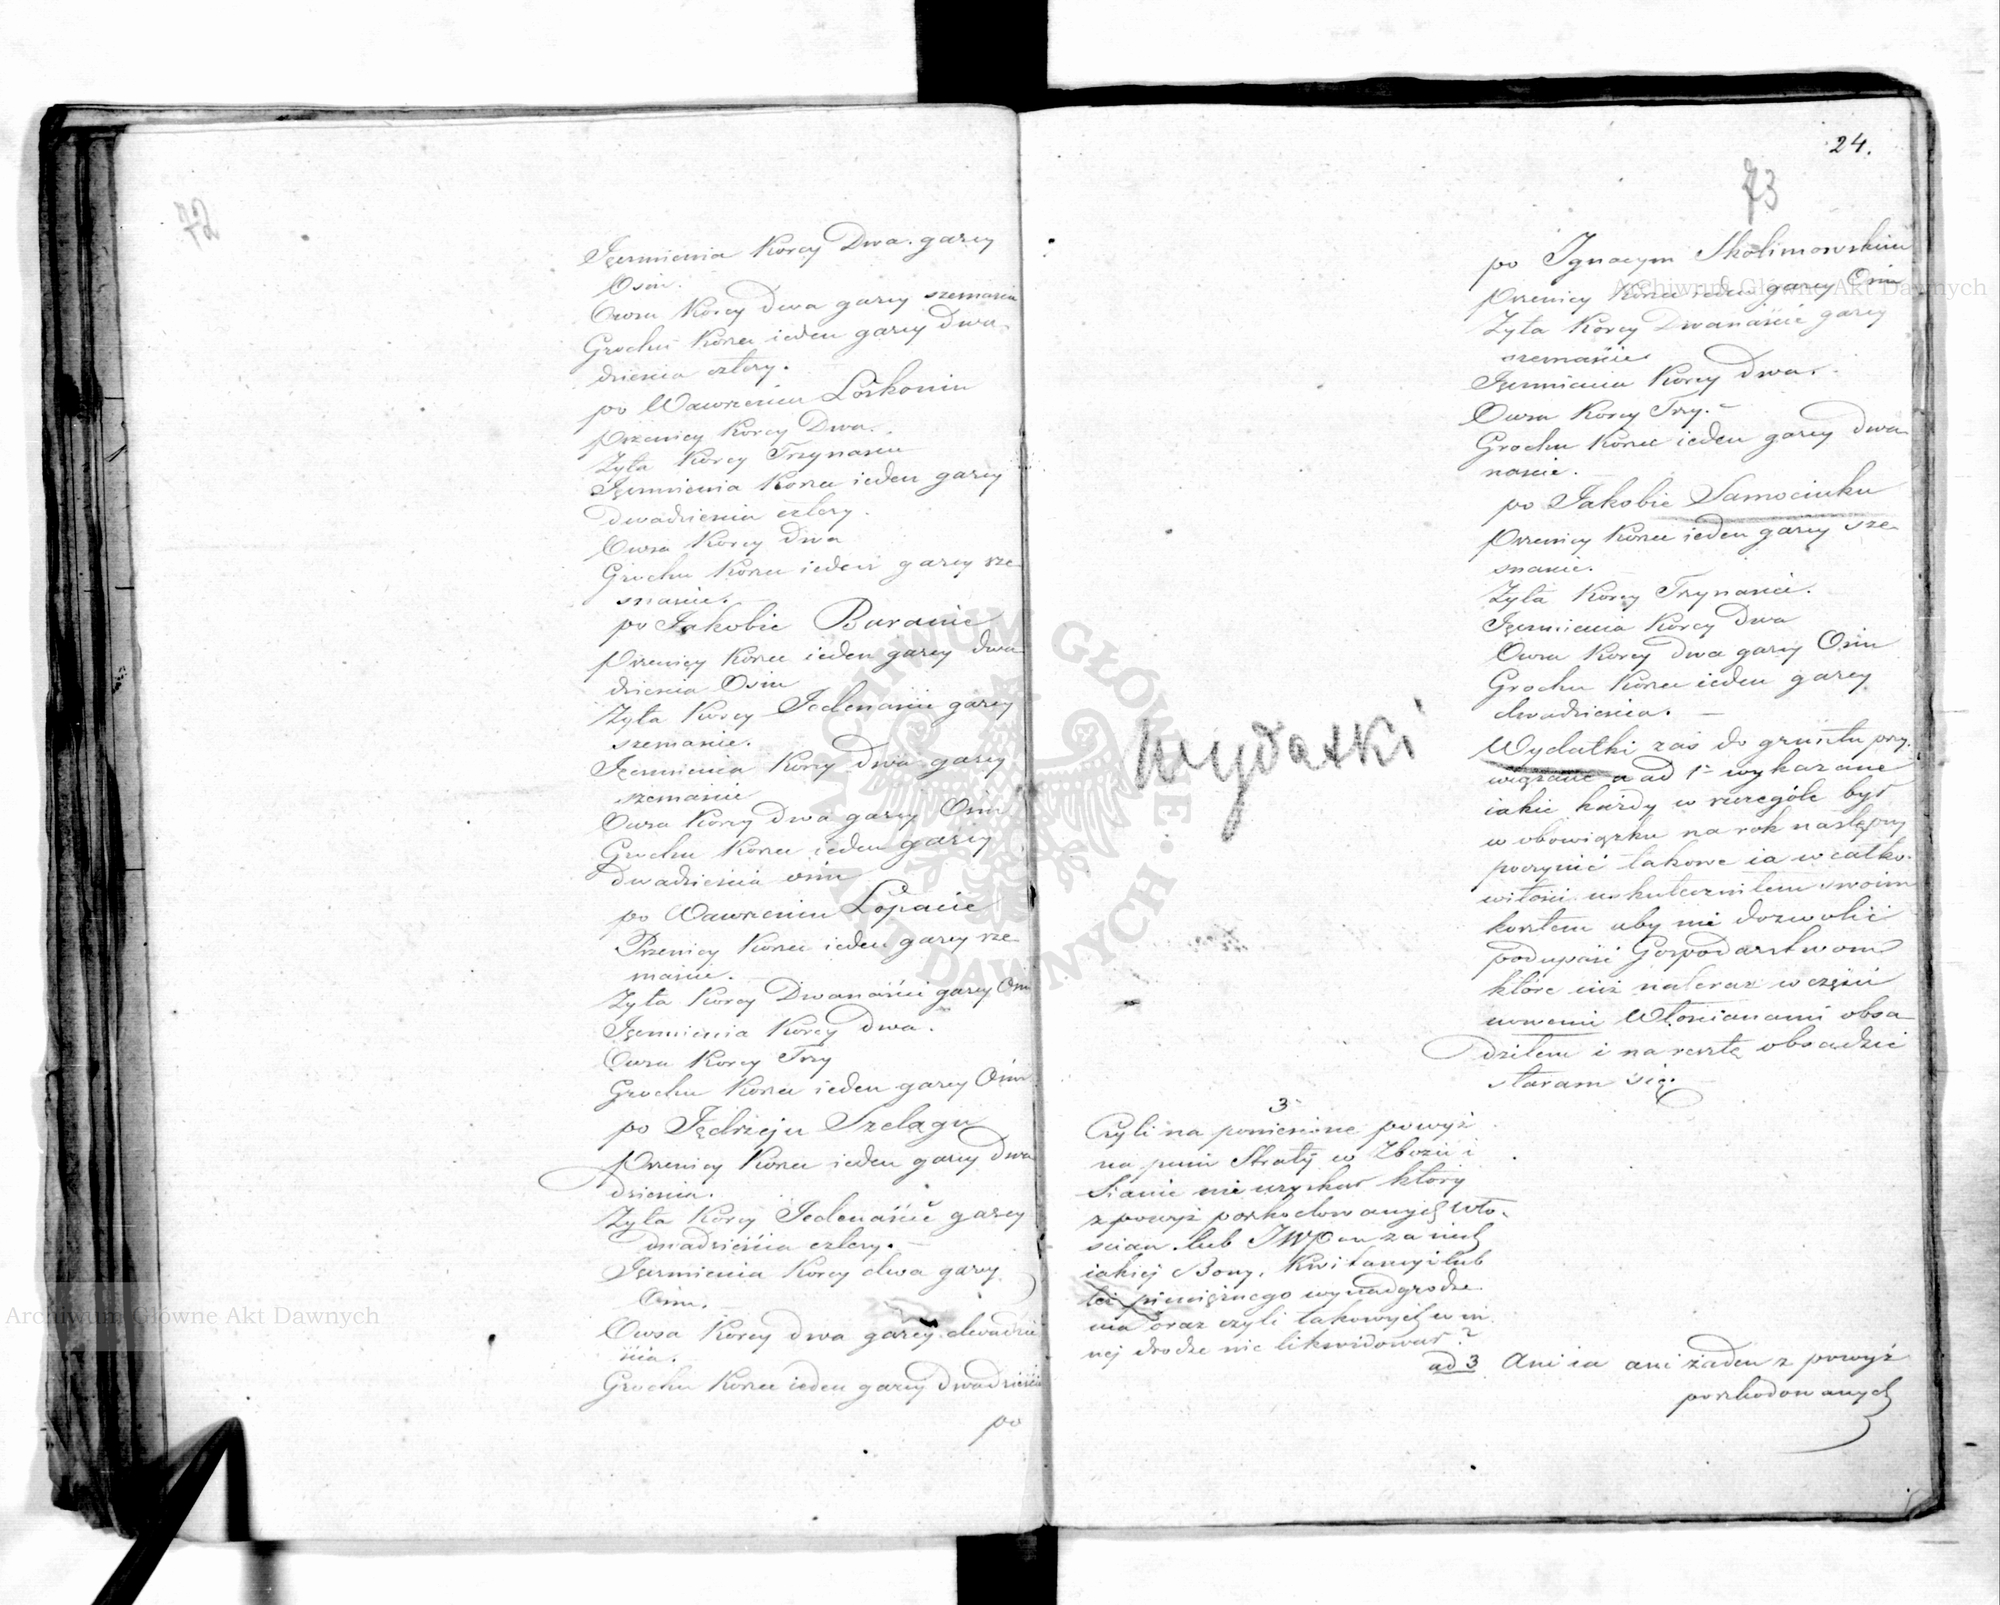 72
Jęczmienia Korcy Dwa. garcy
Osm.
Owsa Korcy dwa garcy szesnaście
Grochu Korzec ieden garcy dwa-
dzieścia cztery.
po Wawrzeńcu Loskoniu
Pszenicy Korcy Dwa.
Zyta Korcy Trzynaście
Jęczmienia Korzec ieden garcy
dwadzieścia cztery.
Owsa Korcy dwa
Grochu Korzec ieden garcy sze-
snaście.
po Jakobie Baranie
Pszenicy Korzec ieden garcy dwa
dzieścia Osm
Zyta Korcy Jedenaście garcy
szesnaście.
Jęczmienia Korcy dwa garcy
szesnaście
Owsa Korcy dwa garcy Osm
Grochu Korzec ieden garcy
dwadzieścia osm
po Wawrzeńcu Łopacie
Pszenicy Korzec ieden garcy sze
snaście.
Zyta Korcy Dwanaście garcy Osm
Jęczmienia Korcy dwa.
Owsa Korcy Trzy
Grochu Korzec ieden garcy Osm
po Jędrzeju Szelągu
Pszenicy Korzec ieden garcy dwa
dzieścia.
Zyta Korcy Jedenaście garcy
dwadzieścia cztery.
Jęczmienia Korcy dwa garcy
Osm.
Owsa Korcy dwa garcy dwadzie
ścia.
Grochu Korzec ieden garcy dwadzieścia
po
24.
73
po Ignacym Skolimowskim
Pszenicy Korzec ieden garcy Osm
Zyta Korcy Dwanaście garcy
szesnaście
Jęczmienia Korcy dwa.
Owsa Korcy Trzy.
Grochu Korzec ieden garcy dwa
naście.
po Jakobie Samociuku
Pszenicy Korzec ieden garcy sze-
snaście.
Zyta Korcy Trzynaście.
Jęczmienia Korcy dwa
Owsa Korcy dwa garcy Osm
Grochu Korzec ieden garcy
dwadzieścia.
Wydatki
Wydatki zaś do gruntu przy-
wiązane a ad 1 wykazane
iakie każdy w szczególe był
w obowiązku na rok następny
poczynić takowe ia w całko-
witości uskuteczniłem swoim
kosztem aby nie dozwolić
podupaść Gospodarstwom
które iuż nateraz w części
nowemi Włościanami obsa
dziłem i na resztę obsadzić
staram się.
3
Czyli na poniesione powyż
na pniu Straty w Zbożu i
Sianie nie uzyskał który
z powyż poszkodowanych Wło-
ścian lub JWPan za nich
iakiej Bony, Kwitancyi lub
też pieniężnego wynadgrodze
nia oraz czyli takowych w in
nej drodze nie likwidował?
ad 3 Ani ia ani żaden z powyż
poszkodowanych
Archiwum Główne Akt Dawnych
Archiwum Główne Akt Dawnych
ARCHIWUM GŁÓWNE AKT DAWNYCH